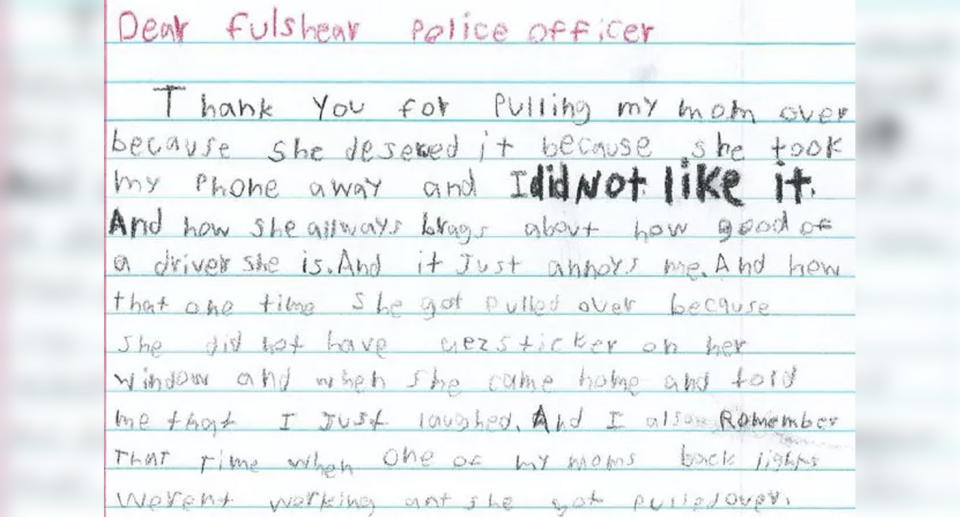 Dear Fulshear Police officer
Thank You for Pulling my mom over
because she deserved it because she took
my Phone away and I did Not like it.
And how she allways brags about how good of
a driver she is. And it Just annoys me. And how
that one time She got pulled over because
she did not have sticker on her
window and when She came home and told
me that I Just laughed. And I also Remember
THAT Time when one of my moms back lights
Werent working ant she got pulled over.